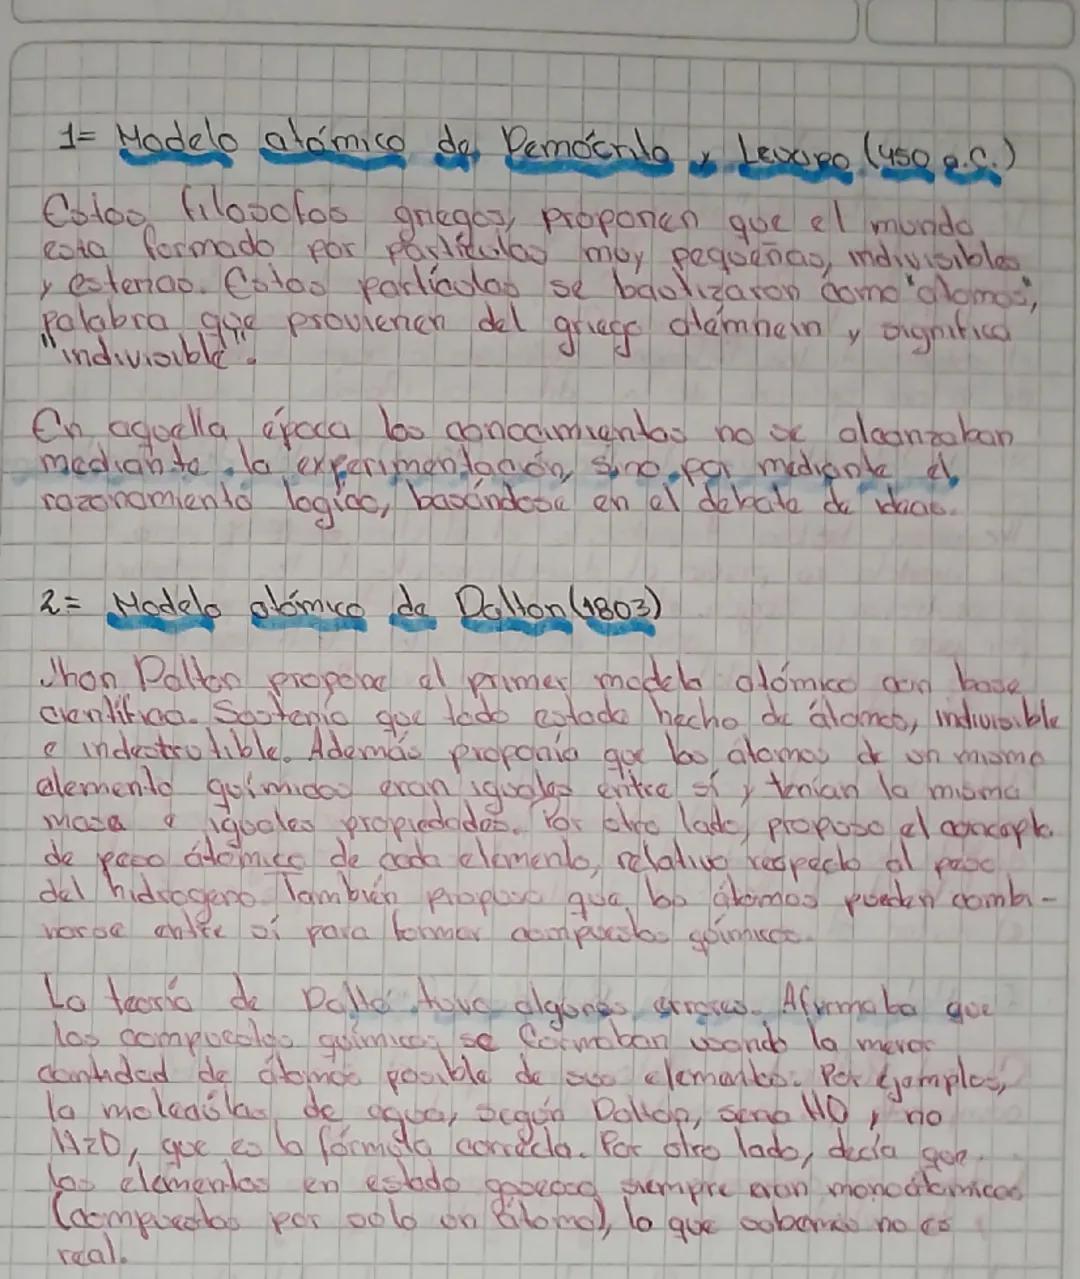 1= Modelo atómico de Demócrito y Leucipo (450 a.C.)
Estos filosofos griegos, proponen que el mundo
esta formado por partículas muy pequeñas, indivisibles
y esternas. Estas partículas se bautizaron como "atomos",
palabra que provienen del griego atémnein y significa
"indivisible".
En aquella época los conocimientos no se alcanzaban
mediante la experimentación, sino por mediante el
razonamiento logico, basándose en el debate de ideas.
2= Modelo atómico de Dalton (1803)
Jhon Dalton propone el primer modelo atómico con base
cientifica. Sostenia que todo estado hecho de átomos, indivisible
e indestrutible. Además proponia que los atomos de un mismo
elemento quimicos eran iguales entre sí y tenían la misma
masa e iguales propiedades. Por otro lado, propuso el concepto
de peso átomico de cada elemento, relativo respecto al peso
del hidrogeno. También propuso que los átomos pueden combi-
narse entre sí para formar compuestos químicos.
La teoria de Dalto tuvo algunos errores. Afirmaba que
los compuestos químicos se formaban usando la menor
cantidad de átomos posible de sus elementos. Por ejemplos,
la moleculas de agua, según Dalton, seria HO y no
H2O, que es la fórmula correcta. Por otro lado, decía que
los elementos en estado gaseoso siempre eran monoatomicos
(compuestos por solo un átomo), lo que sabemos no es
real.